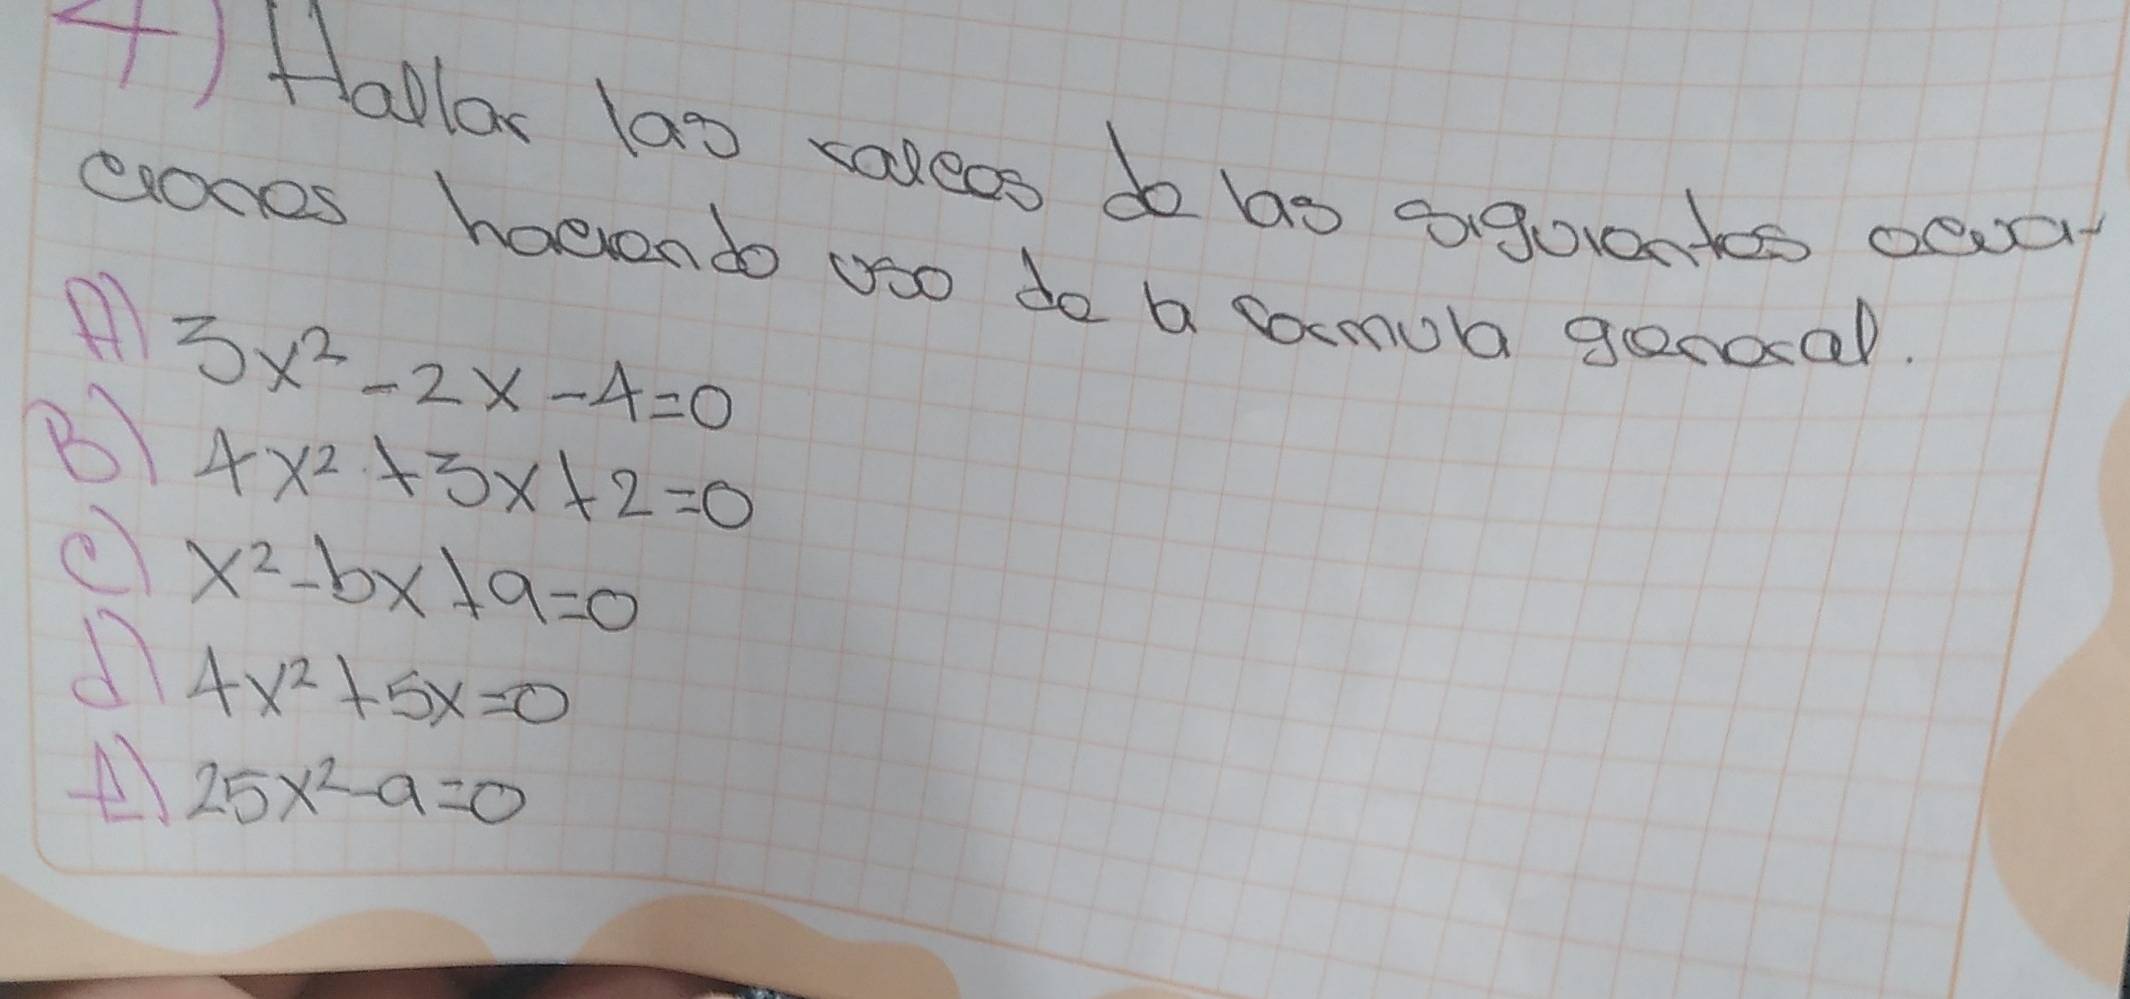 4) Hallar las raices de las siguientes ecua-
ciones haciendo uso de la formula general.
A) 3x² - 2x - 4 = 0
B) 4x² + 3x + 2 = 0
c) x² - 6x + 9 = 0
d) 4x² + 5x = 0
e) 25x² - 9 = 0